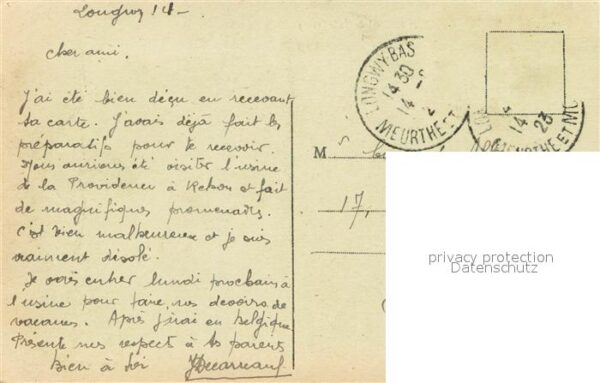 Longwy 14 -
Cher ami.
J'ai été bien déçu en recevant
ta carte. J'avais déjà fait les
préparatifs pour te recevoir.
Nous aurions été visiter l'usine
de la Providence à Rehon et fait
de magnifiques promenades.
C'est bien malheureux et je suis
vraiment désolé.
Je vais entrer lundi prochain à
l'usine pour faire nos devoirs de
vacances. Après j'irai en Belgique
Présente mes respects à tes parents
Bien à toi
LONGWY BAS
14 30
14
MEURTHE ET
14
23
MEURTHE ET MO
M
17,
privacy protection
Datenschutz